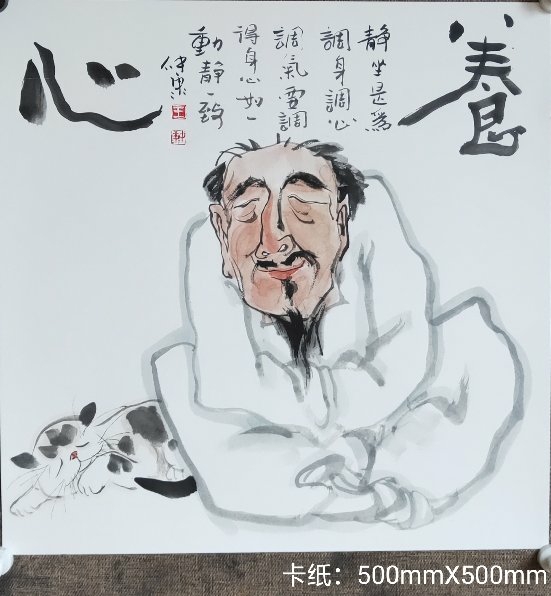 養
心
静坐是為
調身調心
調氣要調
得身心如一
動静一致
卡纸：500mmX500mm